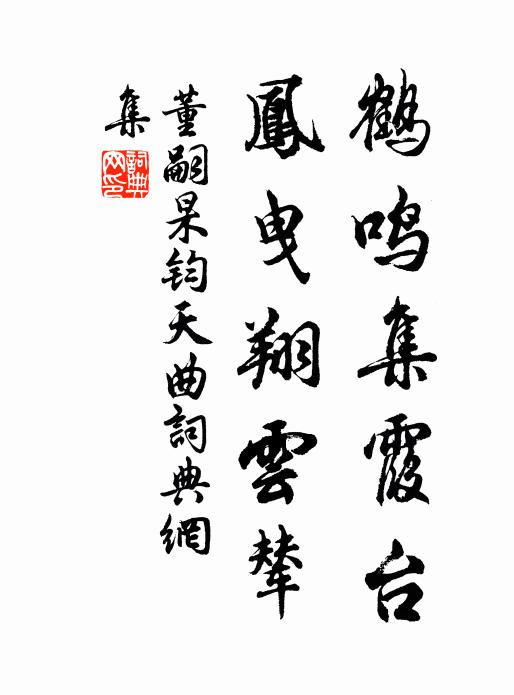 鶴鳴集霞台
鳳曳翔雲輦
董嗣杲鈞天曲詞典網
集
詞典
网印